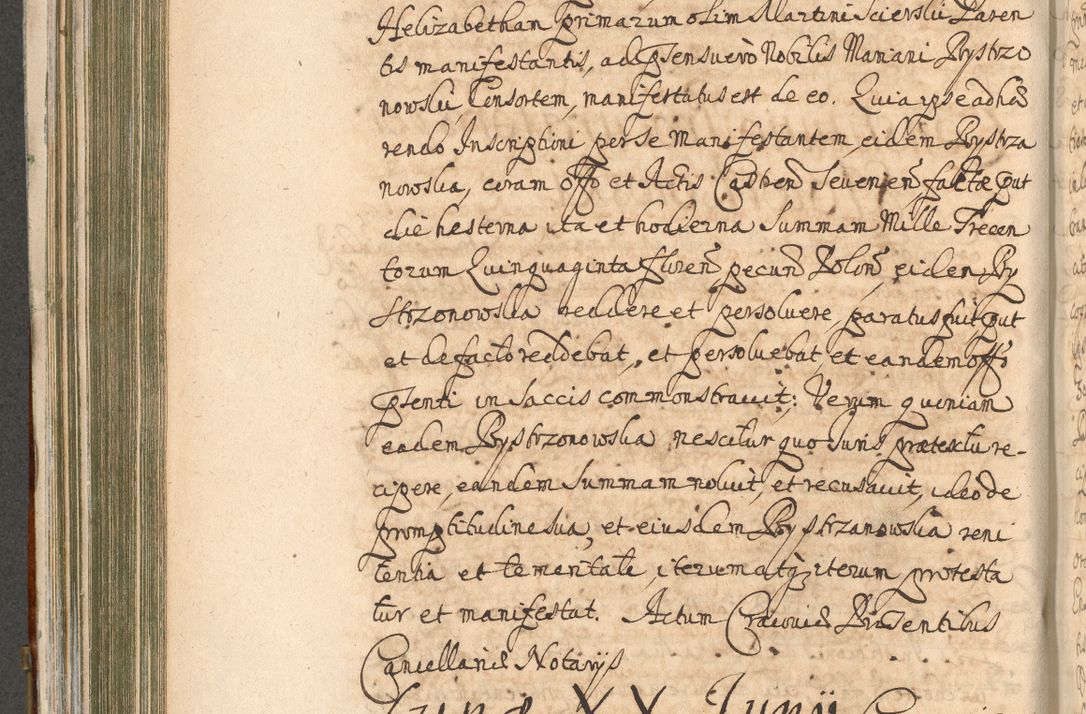 Helizabetham primarum olim Martini Scierski Paren
tis manifestantis, ad psens uero Nobilis Mariani Bystrzo
nowski, Consortem, manifestatus est de eo. Quia ipse adhæ
rendo Inscriptioni per se Manifestantem, eidem Bystrza
nowska, coram offo et Actis Castren Seuerien, factæ put
die hesterna ita et hodierna Summam Mille Trecen
torum Quinquaginta floren pecun Polon, eidem By
strzonowska reddere et persoluere, paratus fuit put
et de facto reddebat, et persoluebat, et eandem offo
psenti in saccis commonstrauit: Verum quoniam
eadem Bystrzonowska nescitur quo Juris prætextu re-
cipere, eandem Summam noluit, et recusauit, ideo de
promptitudine sua, et eiusdem Bystrzanowska reni
tentia et temeritate, iterum atq iterum protesta
tur et manifestat. Actum Cracouiæ Præsentibus
Cancellariæ Notarijs
Junij